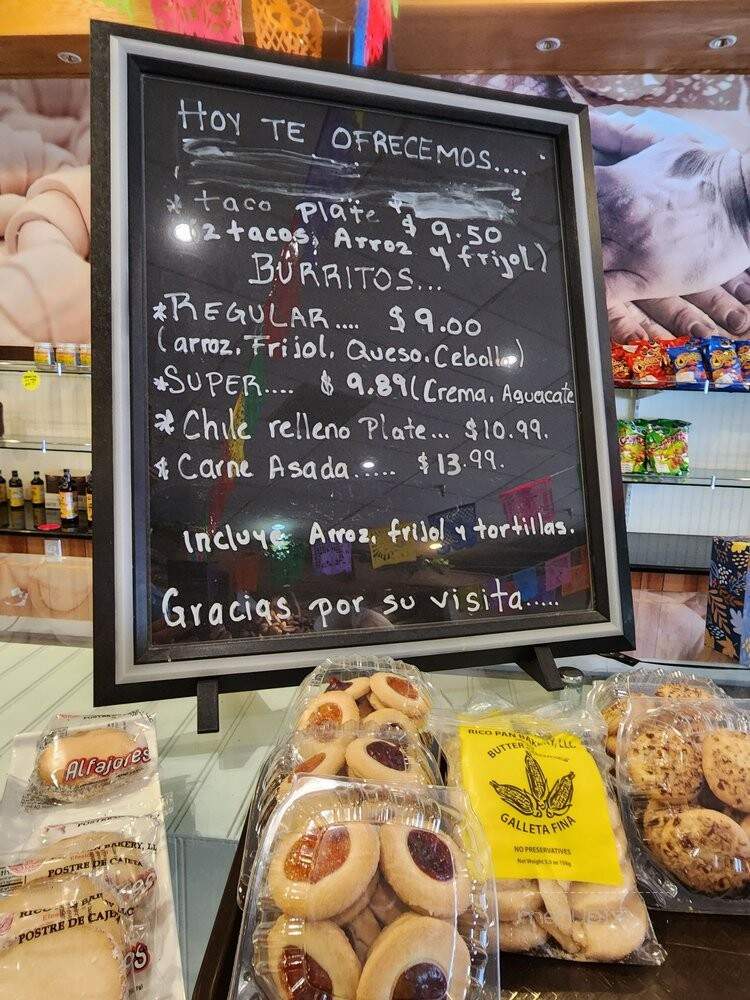 HOY TE OFRECEMOS....
* taco plate $ 9.50
2 tacos, Arroz y frijol)
BURRITOS...
*REGULAR.... $9.00
(arroz, Frijol, Queso, Cebolla)
*SUPER.... $ 9.89 (Crema, Aguacate
* Chile relleno Plate... $10.99.
* Carne Asada..... $13.99.
Incluye Arroz, frijol y tortillas.
Gracias por su visita.....
Alfajores
POSTRE DE CAJETA
POSTRE DE CAJ
RICO PAN BAKERY, LLC
BUTTER
GALLETA FINA
NO PRESERVATIVES